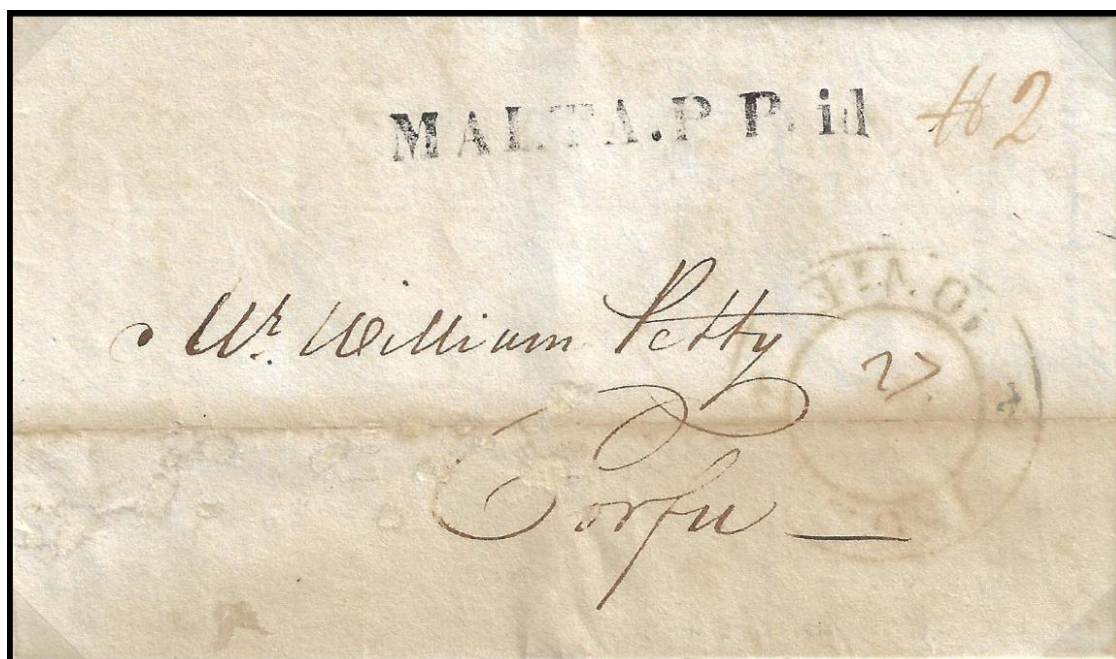 MALTA.P P. id
2
Mr. William Petty
27.
Corfu